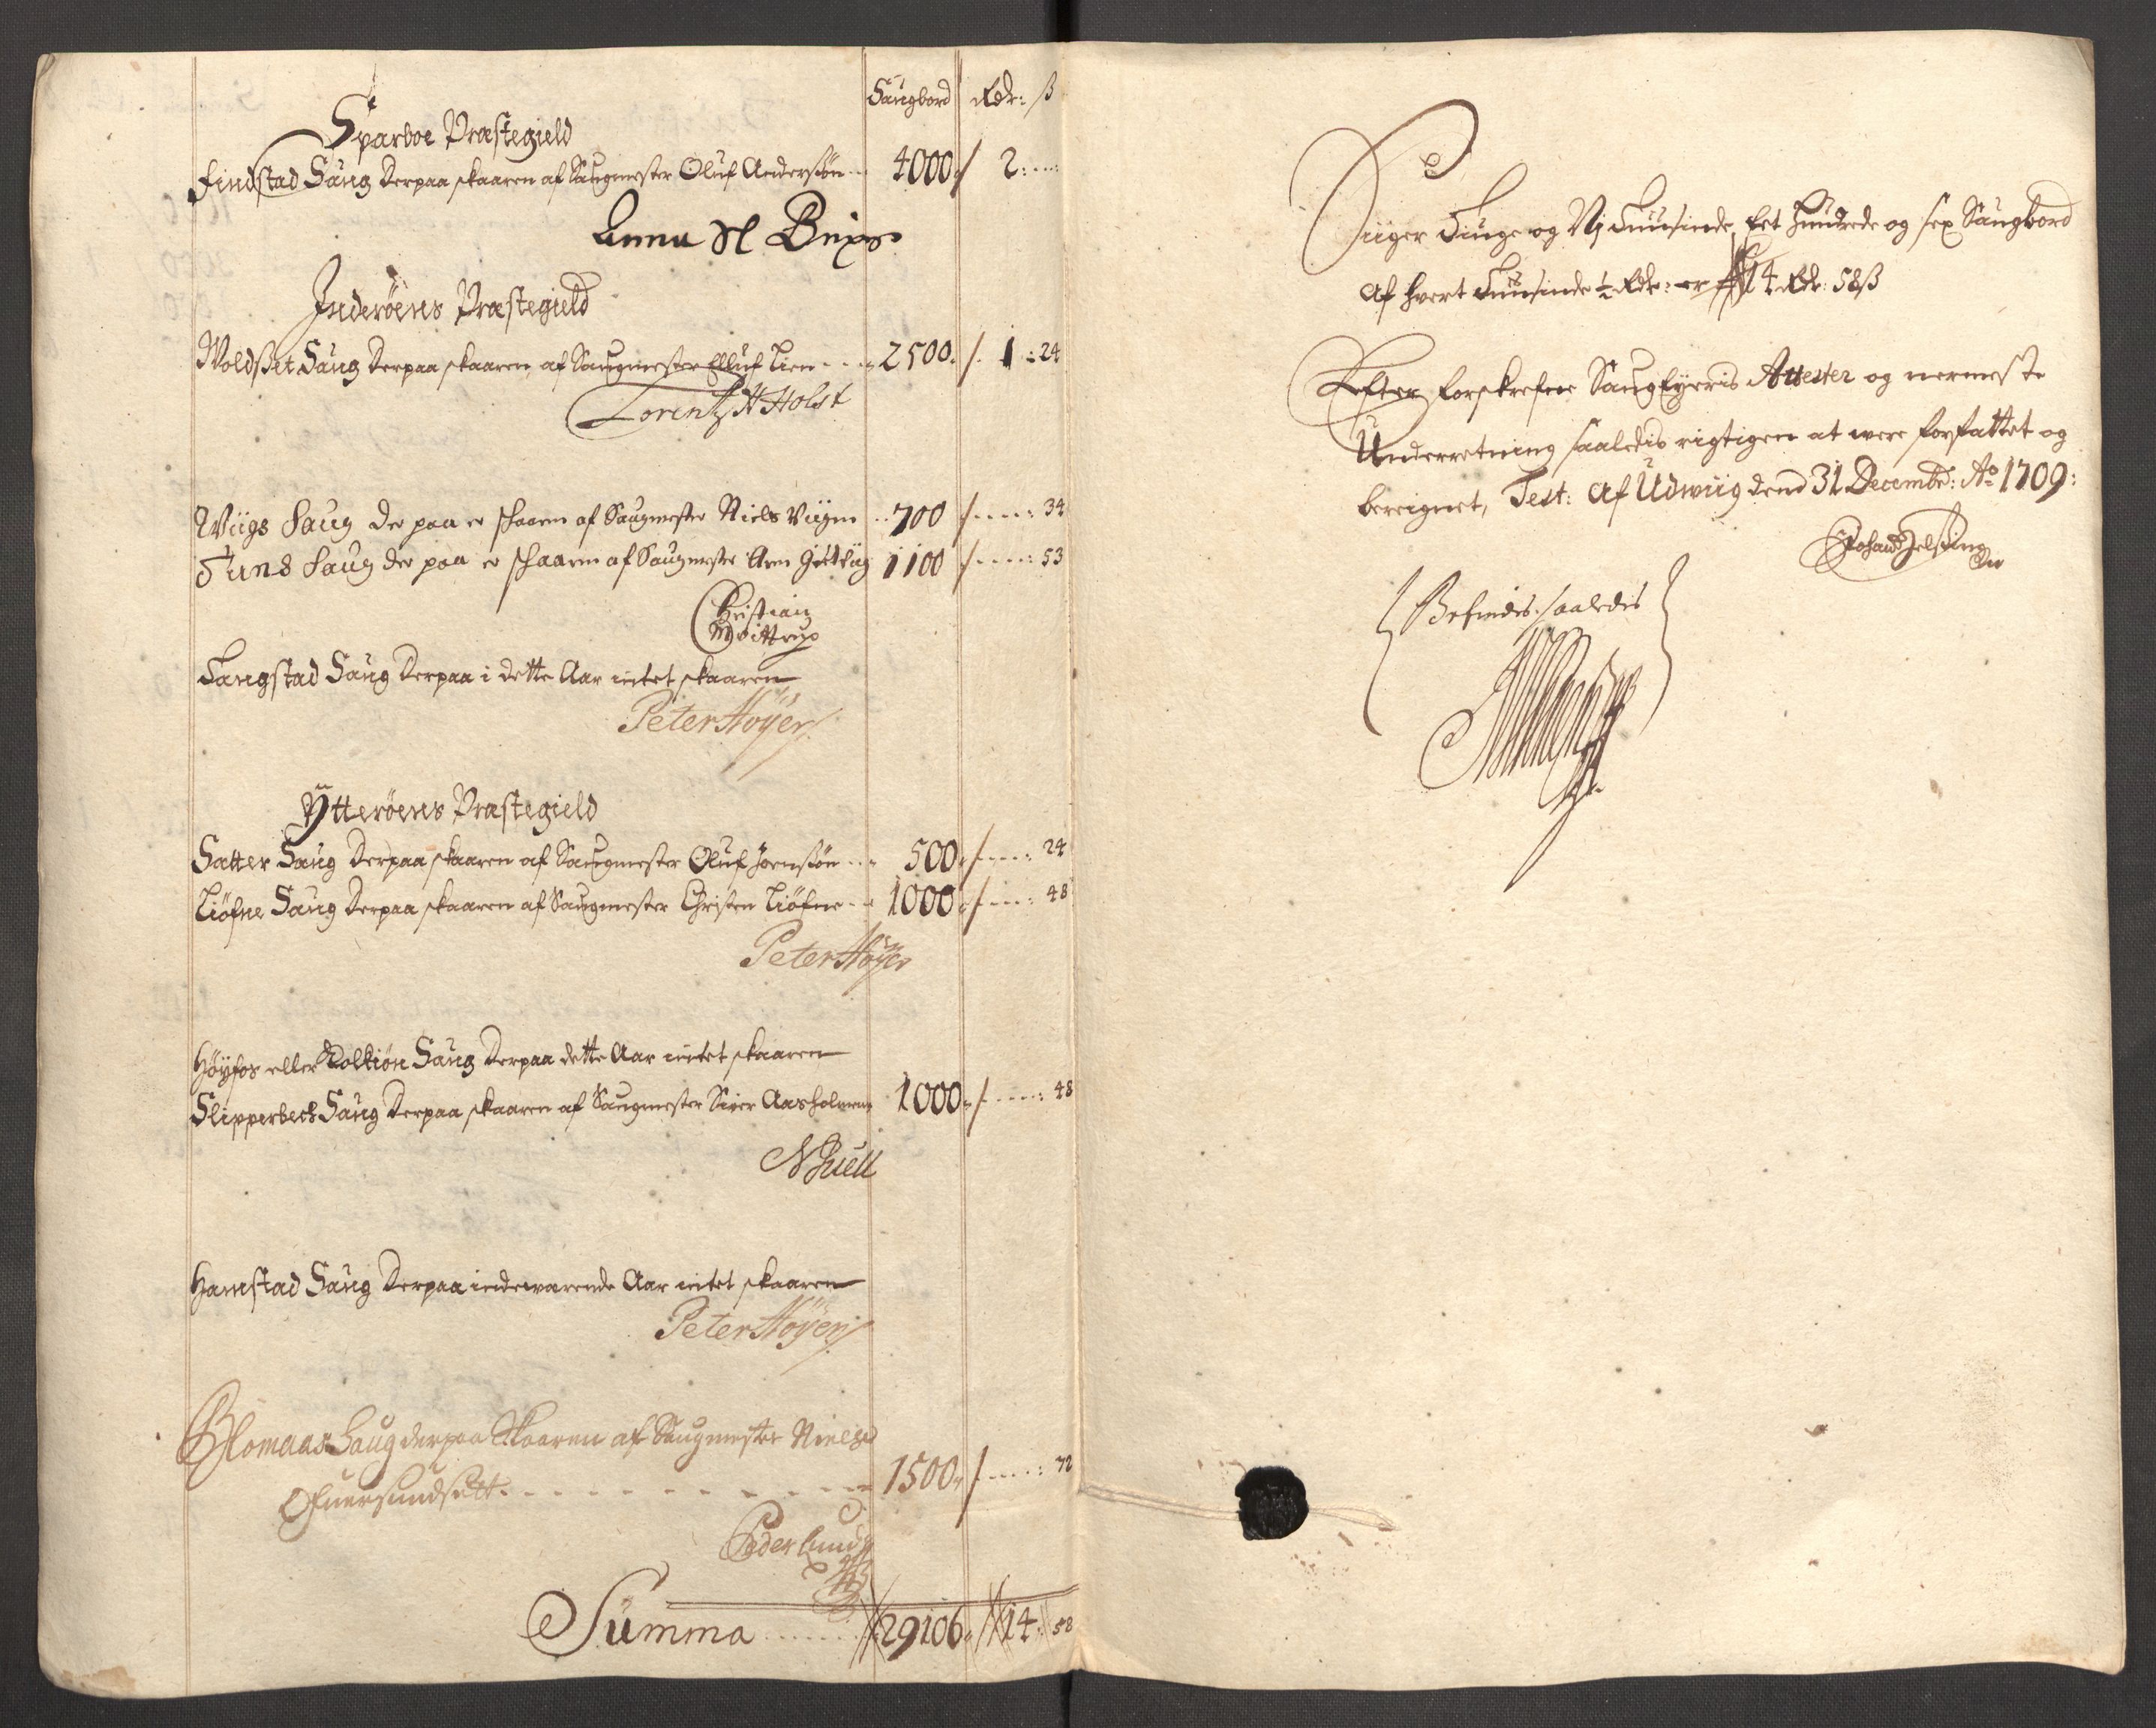 Saugbord Rdr: ß
Sparboe Præstegield
Findstad Saug Derpaa skaaren af Saugmester Oluf Anderssøn 4000 / 2: ....:
Anna Sl Brixs
Inderøens Præstegield
Woldset Saug Derpaa skaaren af Saugmester Elluf Lien 2500. / 1 : 24
Lorentz H Holst
Wiigs Saug der paa er skaaren af Saugmester Niels Viigen 700 / ....: 34
Tuns Saug der paa er skaaren af Saugmester Arn 1100 / ....: 53
Christian
Wittrup
Langstad Saug Derpaa i dette Aar intet skaaren
Peter Høyer
Ytterøens Præstegield
Satter Saug Derpaa skaaren af Saugmester Oluf Joenssøn 500 / ....: 24
Liøfne Saug Derpaa skaaren af Saugmester Christen Liøfne 1000 / ....: 48
Peter Høyer
Høyfos eller Saug Derpaa dette Aar intet skaaren
Slipperbech Saug Derpaa skaaren af Saugmester Siver Aasholmen 1000 / ....: 48
Hamstad Saug Derpaa indewærende Aar intet skaaren
Peter Høyer
Blomaas Saug derpaa Skaaren af Saugmester Niels
Ofuersundsett 1500 / ....: 72
Peder Lund
Summa 29106. / 14: 58
Tiuger Tiuge og Nj Tuusinde Eet Hundrede og sex Saugbord
Af hvert Tuusinde ½ Rdr: er 14 Rdr: 58 ß
Efter forskrefne Saug Eyeris Attester og nermeste
Underretning saaledis rigtigen at were forfattet og
bereignet, Test: Af Udwiig dend 31 Decembr: Ao 1709:
Befindes saaledis